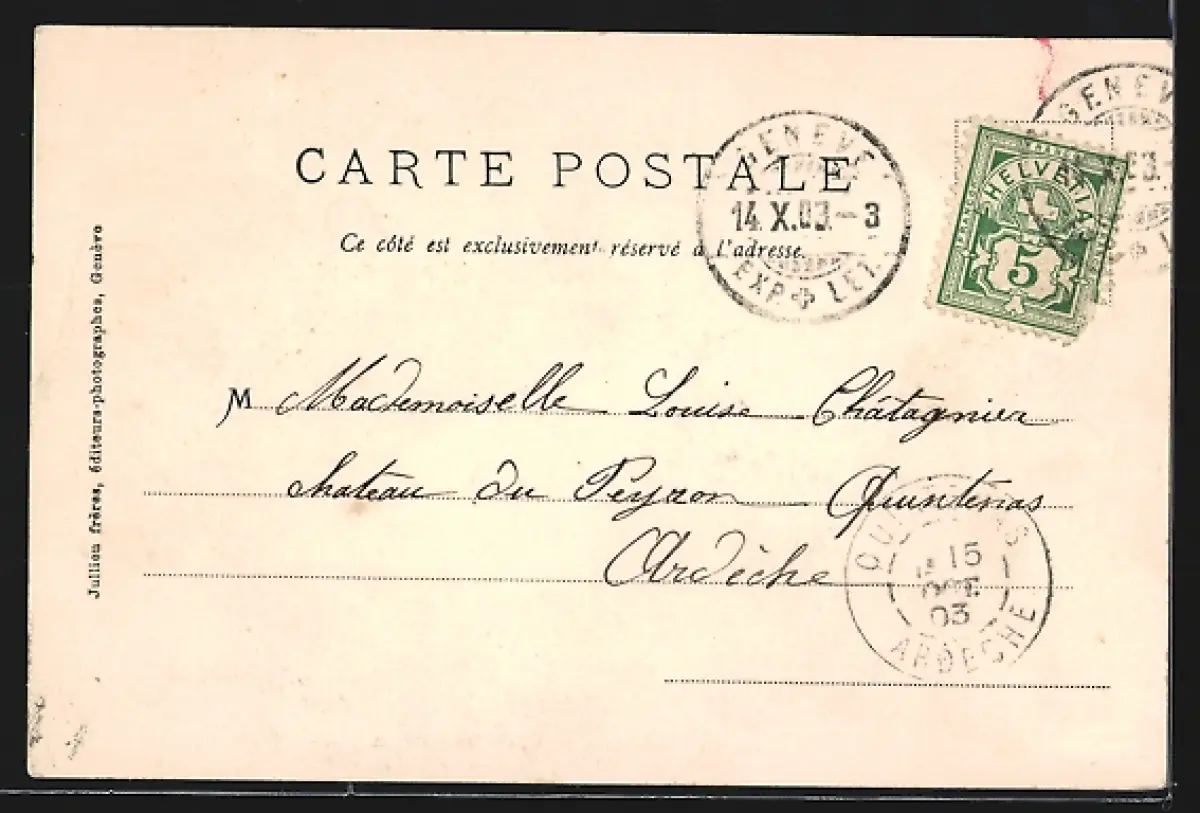 CARTE POSTALE
Ce côté est exclusivement réservé à l'adresse.
GENEVE
14.X.03.-3
EXP. LET.
GENEV
HELVETIA
5
M Mademoiselle Louise Châtagnier
chateau du Peyron Quintenas
Ardèche
QUINTENAS
15
OCT
03
ARDECHE
Jullien frères, éditeurs-photographes, Genève